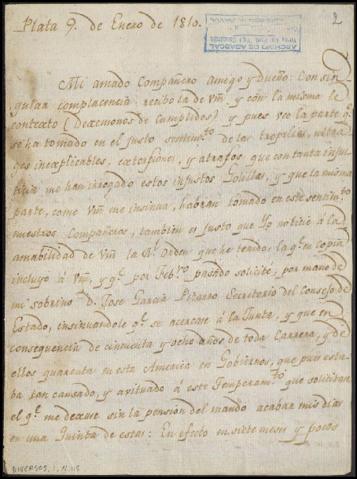 Plata 9. de Enero de 1810.
2
ARCHIVO DE ABASCAL
Mi amado Compañero Amigo y Dueño: Con sin
gular complacencia recibo la de Vm, y con la misma le
contexto (Dexemonos de Cumplidos) y pues veo la parte q.e
se ha tomado en el justo sentim.to de los tropelías, ultra
ges inexplicables, extorsiones, y atrasos que con tanta injus
ticia me han irrogado estos injustos Golillas, y que la misma
parte, como Vm me insinua, habran tomado en este sentim.to
nuestros Compañeros, tambien es justo que Yo noticie á la
amabilidad de Vm la R.l Orden que he tenido, la q.e en copia
incluyo á Vm, y q.e por Feb.ro pasado solicite, por mano de
mi sobrino D. Jose Garcia Pizarro Secretario del Consejo de
Estado, insinuandole q.e se acercase á la Junta, y que en
consequencia de cincuenta y ocho años de toda Carrera, y de
ellos quarenta en esta America en Gobiernos, que pues esta
ba tan cansado, y avituado á este Temperam.to que solicitaba
el q.e me dexase sin la pension del mando acabar mis dias
en una Quinta de estas: En efecto en siete meses y pocos
DIVERSOS, 1,